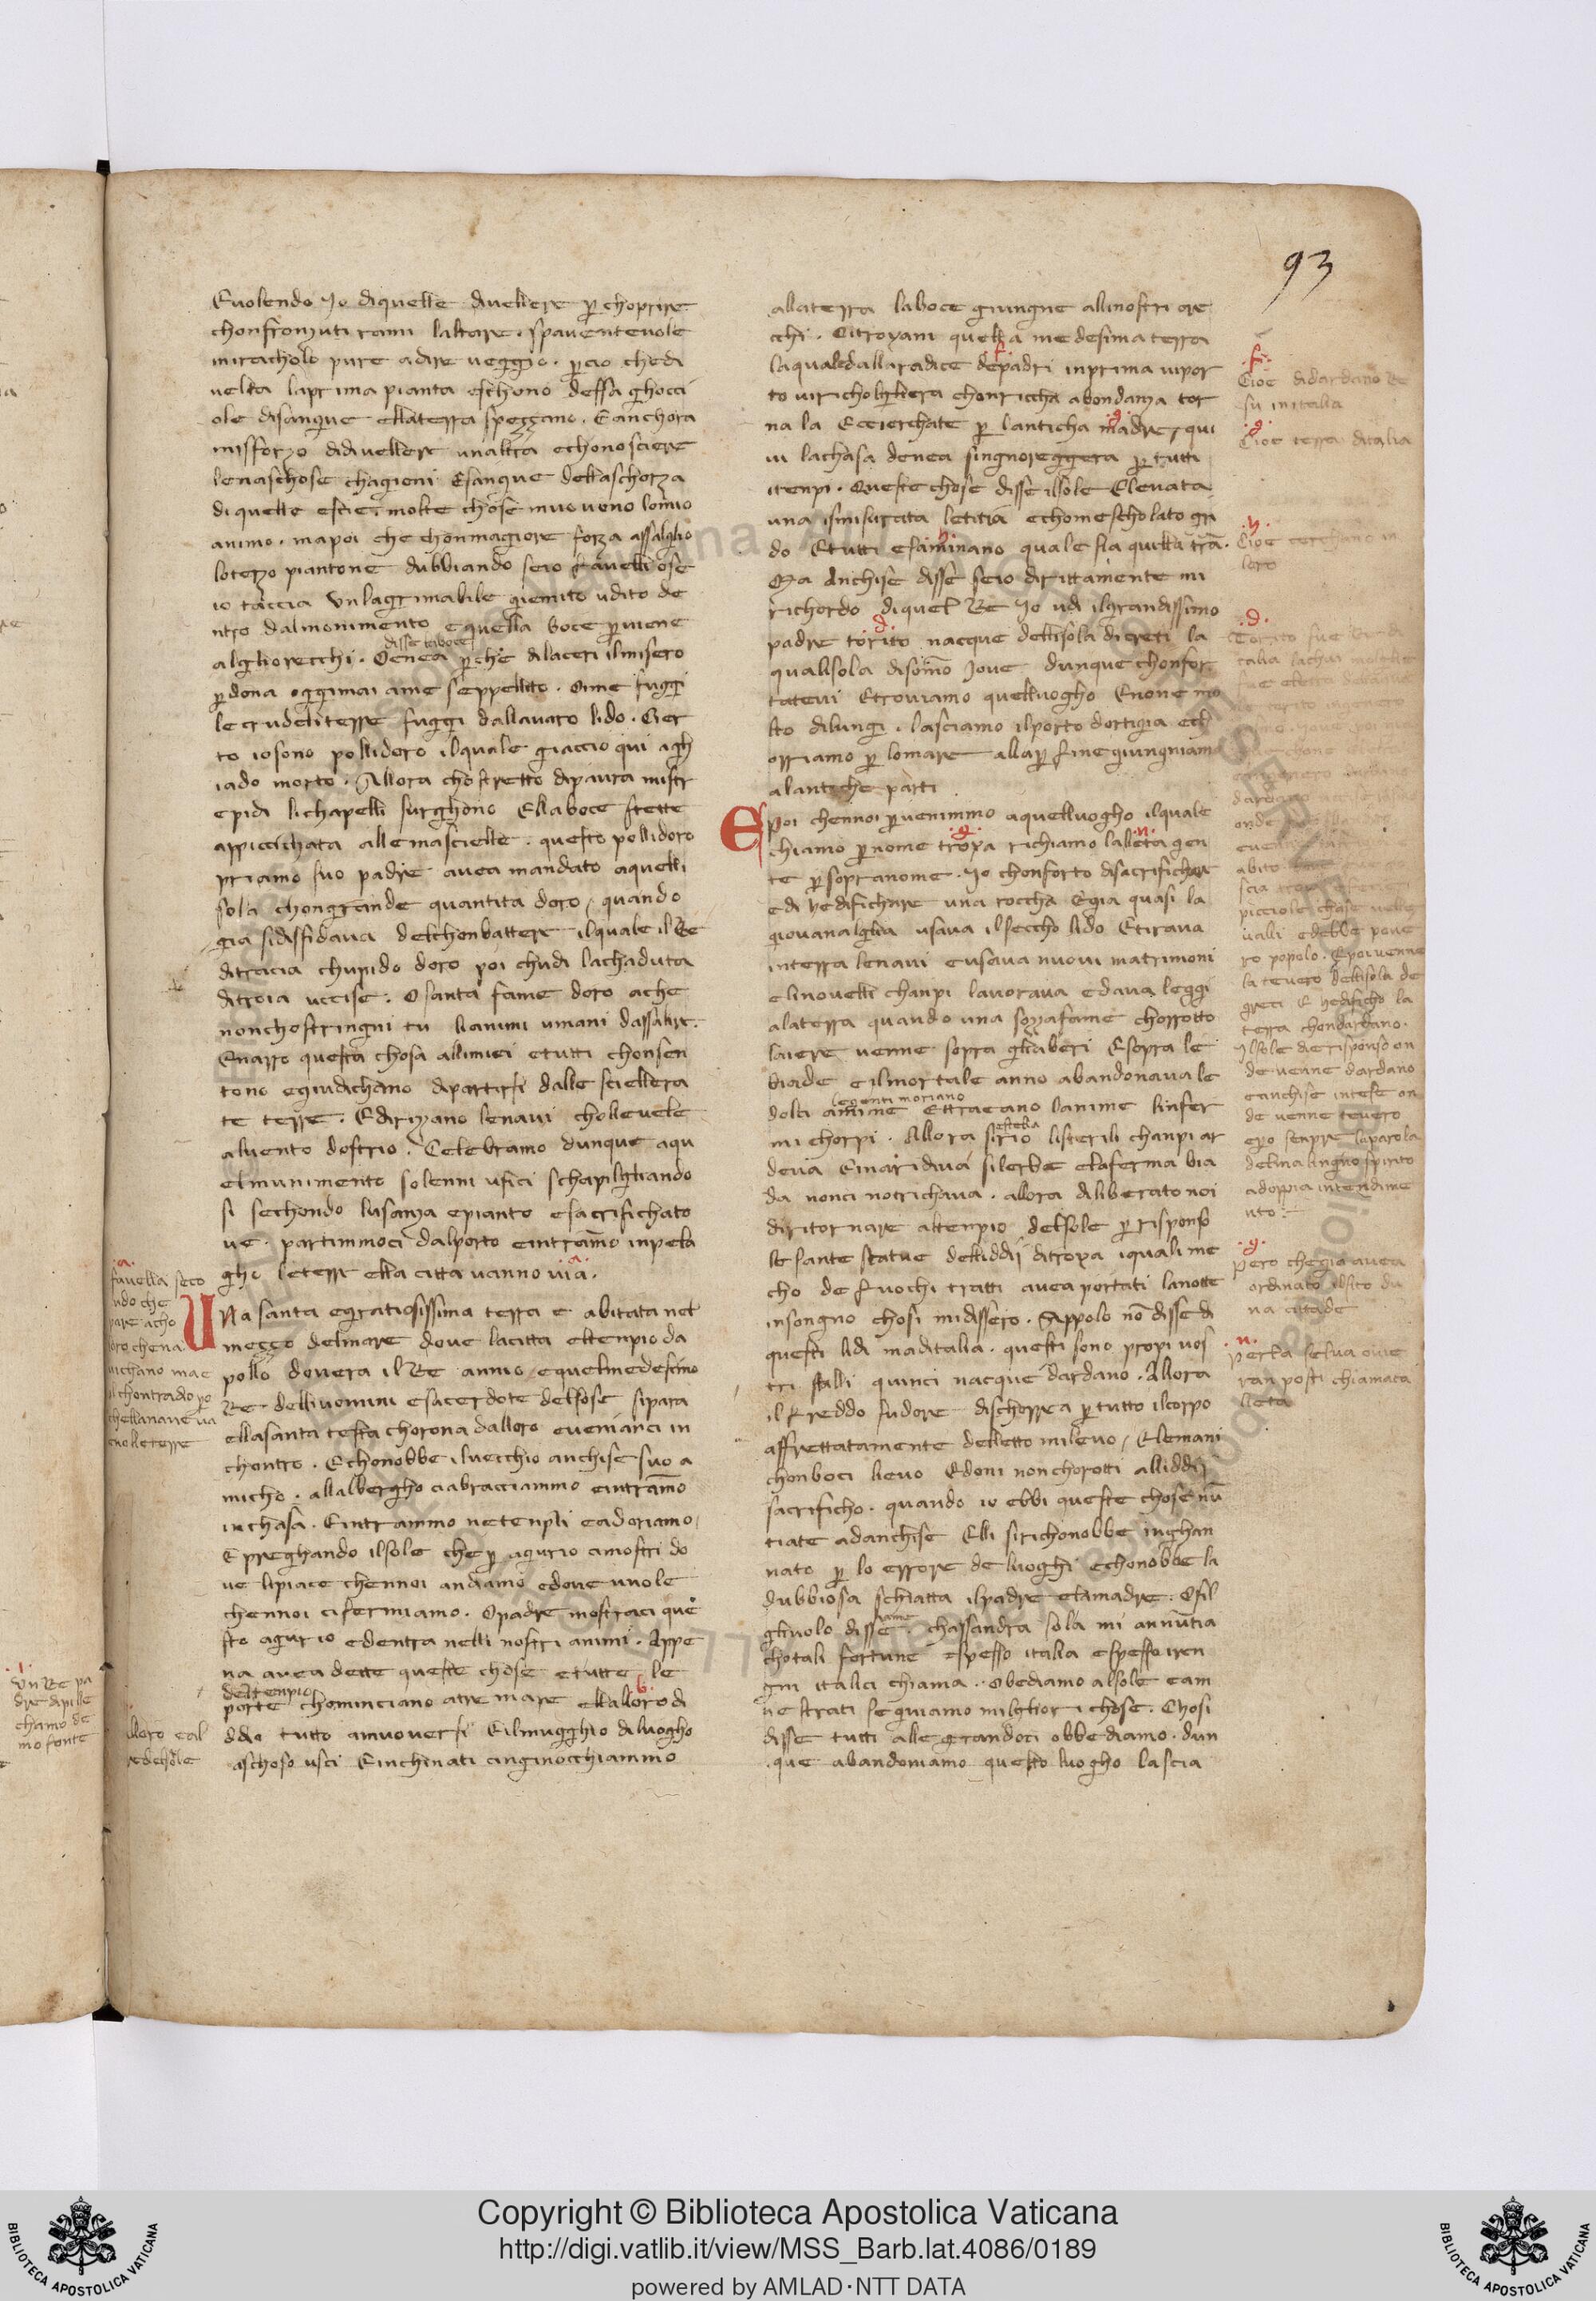 93
Euolendo Jo diquelle diuellere p choprire
chonfronzuti rami laltare. spauenteuole
miracholo pure adire ueggio. pcio chedi
uelta laprima pianta eschono dessa ghocci
ole disangue ellaterra spezzano. Eanchora
misforzo didiuellere unaltra echonosciere
lenaschose chagioni Esangue dellaschorza
di quelle escie, molte chose muoueno lomio
animo. mapoi che chonmagiore forza assalglio
loterzo piantone dubbiando seio fauelli ose
io taccia Vnlagrimabile giemito udito de
ntro dalmonimento equella boce puiene
disse laboce
algliorecchi. Oenea pche dilaceri ilmisero
pdona oggimai ame seppellito. Oime fuggi
le crudeli terre fuggi dallauaro lido. Cer
to iosono pollidoro ilquale giaccio qui agh
iado morto. Allora chostretto dipaura mistr
epidi lichapelli surghono Ellaboce stette
appicchata allemascielle. questo pollidoro
priamo suo padre auea mandato aquelli
sola chongrande quantita doro, quando
gia sidisfidaua delchonbattere ilquale ilRe
ditracia chupido doro poi chudi lachaduta
ditroia uccise. Osanta fame doro ache
nonchostringni tu lianimi umani dassalire.
Enarro questa chosa allimiei etutti chonsen
tono egiudichano dipartirsi dalle sciellera
te terre. Edirizano lenaui cholleuele
aluento dostrio. Celebramo dunque aqu
elmunimento solenni ufici schapilgliando
si sechondo lusanza epianto esacrifichato
ue. partimmoci dalporto eintramo inpela
gho leterre ella citta uanno uia.
.a.
.a.
fauella seco
ndo che
pare acho
loro chena
uichano mae
chontradio po
chellanaue ua
enolleterre
VNa santa egratiosissima terra e abitata nel
mezzo delmare doue lacitta eltenpio da
pollo douera ilRe annio, equelmedesimo
Re delliuomini esacerdote delsole sipara
ellasanta testa chorona dalloro eueniaci in
chontro. Echonobbe iluecchio anchise suo a
micho. allalbergho ciabracciammo eintramo
inchasa. Eintrammo netenpli eadoriamo,
Epreghando ilsole che p agurio cimostri do
ue lipiace chennoi andiamo edoue uuole
chennoi cifermiamo. Opadre mostraci que
sto agurio edentra nelli nostri animi. Appe
na auea dette queste chose etutte le
deltenpio
.b.
porte chominciano atremare ellalloro di
ddio tutto amuouersi Eilmugghio diluogho
aschoso usci Einchinati cinginocchiammo
.1.
un Re pa
dre dipille
chamo de
mo fonte
lloro eal
redelsole
allaterra laboce giungne allinostri ore
cchi. Otroyani quella medesima terra
f
laqualedallaradice depadri inprima uipor
to uiricholgliera chonriccha abondanza tor
.g.
na la Eccierchate p lanticha madre, qui
ui lachasa denea singnoreggera p tutti
itenpi. Queste chose disse ilsole Eleuata
una ismisurata letitia echomescholato gri
h
do Etutti esaminano quale sia quella tra.
Ma Anchise disse seio dirittamente mi
richordo diquel Re Jo udi ilgrandissimo
d
padre torito nacque dellisola dicreti la
qualisola disomo Joue dunque chonfor
tateui Etrouiamo quelluogho Enone mo
lto dilungi. lasciamo ilporto dortigia ech
orriamo p lomare allap fine giungniamo
alantiche parti
EPoi chennoi puenimmo aquelluogho ilquale
.g.
.n.
chiamo pnome tropa richiamo lalleta gen
te psopranome. Jo chonforto disacrifichar
edi hedifichare una roccha Egia quasi la
giouanalglia usaua ilseccho lido Etiraua
interra lenaui eusaua nuoui matrimoni
elinouelli chanpi lauoraua edaua leggi
alaterra quando una sozzafame chorrotto
laiere uenne sopra gliaberi Esopra le
biade eilmortale anno abandonauale
legenti moriano
dolci anime Ettraeano lanime linfer
stella
mi chorpi. Allora sirio listerili chanpi ar
deua Einaridiua silerbe elaferma bia
da nonci notrichaua. allora diliberato noi
diritornare altenpio delsole p risponso
le sante statue dellidii ditropa iquali me
cho de fuochi tratti auea portati lanotte
insongno chosi midissero. Appolo no disse di
questi lidi maditalia. questi sono propi uos
tri stalli quinci nacque dardano. Allora
il freddo sudore dischorrea ptutto ilcorpo
affrettatamente delletto mileuo, Elemani
chonboci lieuo Edoni nonchorotti allidii
sacrificho. quando io ebbi queste chose nu
tiate adanchise Elli sirichonobbe inghan
nato p lo errore de luoghi echonobbe la
dubbiosa schiatta ilpadre elamadre. Ofil
gliuolo disse. chassandra sola mi annutia
chotali fortune espesso italia espesso iren
gni italici chiama. Obediamo alsole eam
nestrati seguiamo milgliori chose. Chosi
disse tutti alle grandoci obbediamo. dun
que abandoniamo questo luogho lascia
.f.
Cioe didardano Re
su initalia
.g.
Cioe terra ditalia
.h.
Cioe cerchano in
loro
.d.
Torito fue
dardano
onde
picciole chase nelle
ualli edebbe poue
ro popolo. Epoiuenne
la teucro dellisola de
greci & hedificho la
terra chondardano.
Ilsole dierisponso on
deuenne dardano
eanchise intese on
de uenne teucro
epo senpre laparola
delmalingno spirito
adoppia intendime
nto
.g.
pero chegia auea
ordinato ilsito du
na cittade
.n.
perla selua oue
ran posti chiamata
lleta
Copyright © Biblioteca Apostolica Vaticana
http://digi.vatlib.it/view/MSS_Barb.lat.4086/0189
powered by AMLAD·NTT DATA
BIBLIOTECA APOSTOLICA VATICANA
BIBLIOTECA APOSTOLICA VATICANA